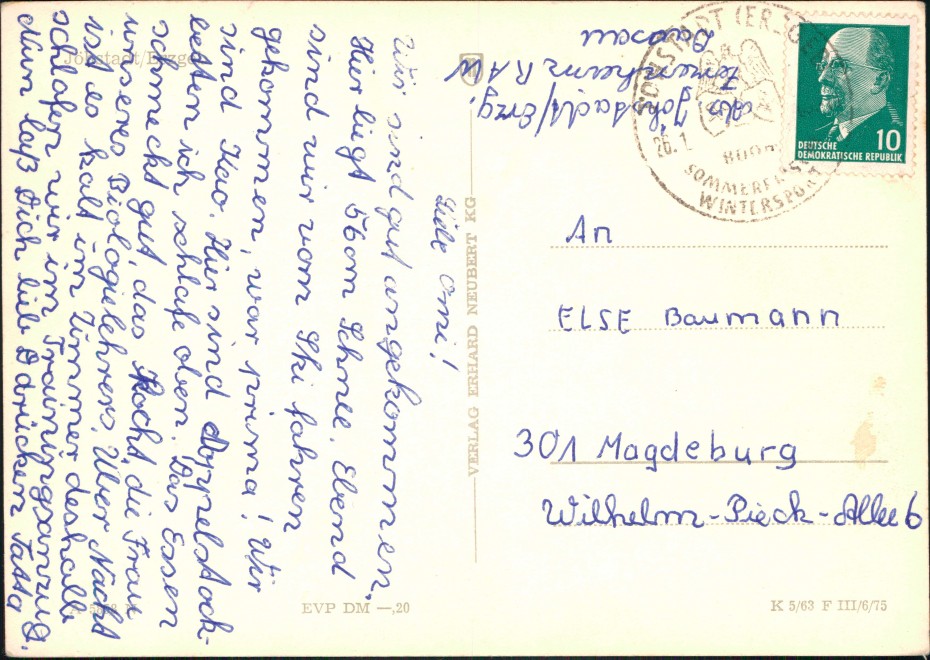 Liebe Omi!
Wir sind gut angekommen.
Hier liegt 56 cm Schnee. Ebend
sind wir vom Ski fahren
gekommen, war prima! Wir
sind K.o. Hier sind Doppelstock-
betten ich schlafe oben. Das Essen
schmeckt gut, das kocht, die Frau
unseres Biologielehrers. Über Nacht
ist es kalt im Zimmer deshalb
schlafen wir im Trainingsanzug.
Nun laß Dich lieb drücken
Jöhstadt/Erzgeb
A 5/63 N
EVP DM —,20
VERLAG ERHARD NEUBERT KG
Jöhstadt/Erzg.
RAW
Dessau
JÖHSTADT (ERZGEB
26.1
SOMMERFRISCHE
WINTERSPORT
10
DEUTSCHE
DEMOKRATISCHE REPUBLIK
An
ELSE Baumann
301 Magdeburg
Wilhelm-Pieck-Allee 6
K 5/63 F III/6/75